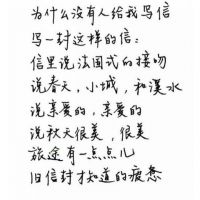 为什么没有人给我写信
写一封这样的信:
信里说法国式的接吻
说春天，小城，和溪水
说亲爱的，亲爱的
说秋天很美，很美
旅途有一点点儿
旧信封才知道的疲惫